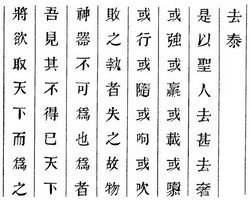 將欲取天下而爲之
吾見其不得已天下
神器不可爲也爲者
敗之執者失之故物
或行或隨或呴或吹
或強或羸或載或隳
是以聖人去甚去奢
去泰